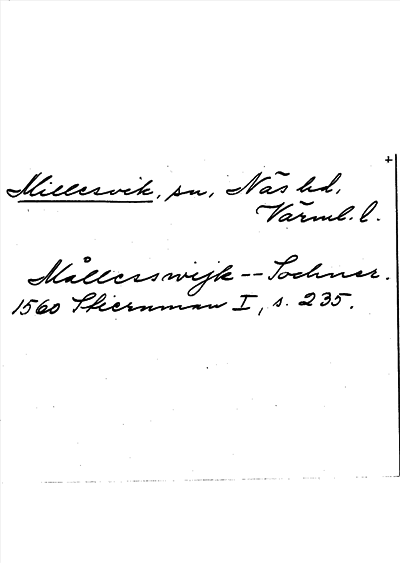 Millesvik, sn, Näs hd,
Värml. l.
Mållesswijk -- Sochner.
1560 Stiernman I, s. 235.